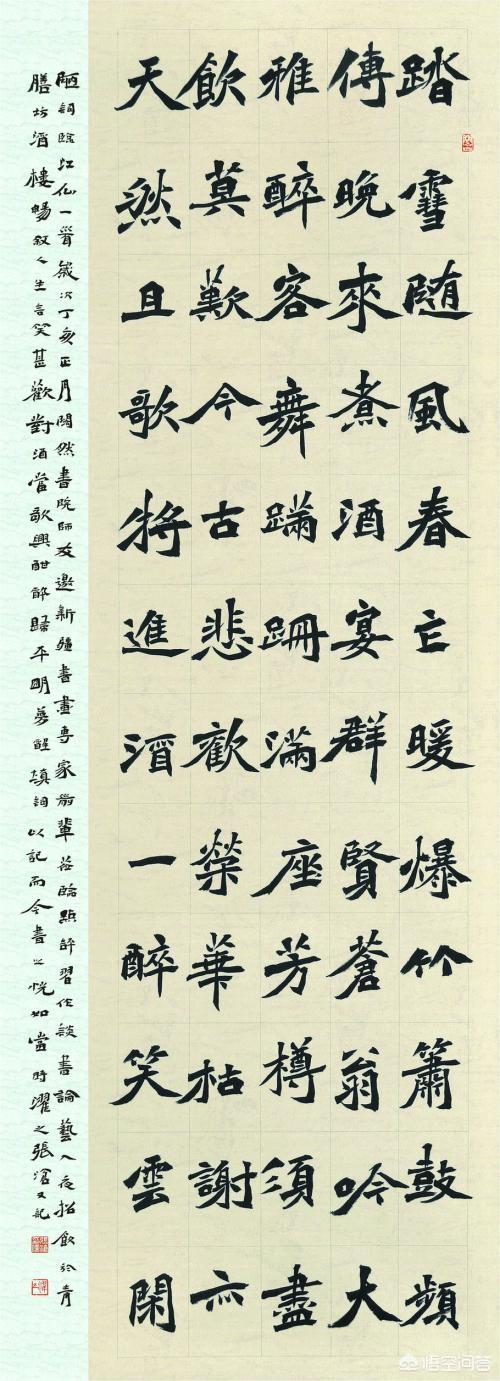 踏雪随風春亡暖爆竹簫鼓頻
傳晚來煮酒宴群賢蒼翁吟大
雅醉客舞蹣跚滿座芳樽須盡
飲莫歎今古悲歡榮華枯謝亦
天然且歌將進酒一醉笑雲閑
陋詞臨江仙一首歲次丁亥正月闇然書院師友邀新疆書畫專家前輩蒞臨點評習作談書論藝入夜招飲於青
膳坊酒樓暢敘人生言笑甚歡對酒當歌興酣醉歸平明夢醒填詞以記而今書之恍如當時濯之張滄又記
悟空问答